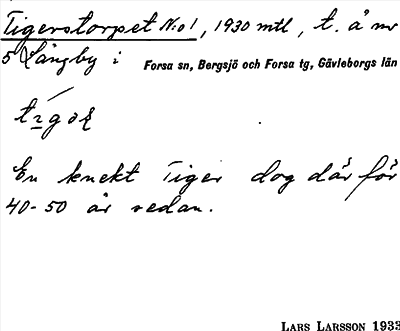 Tigerstorpet No 1, 1930 mtl, t. å nr
5 Långby i Forsa sn, Bergsjö och Forsa tg, Gävleborgs län
En knekt Tiger dog där för
40-50 år sedan.
LARS LARSSON 1933